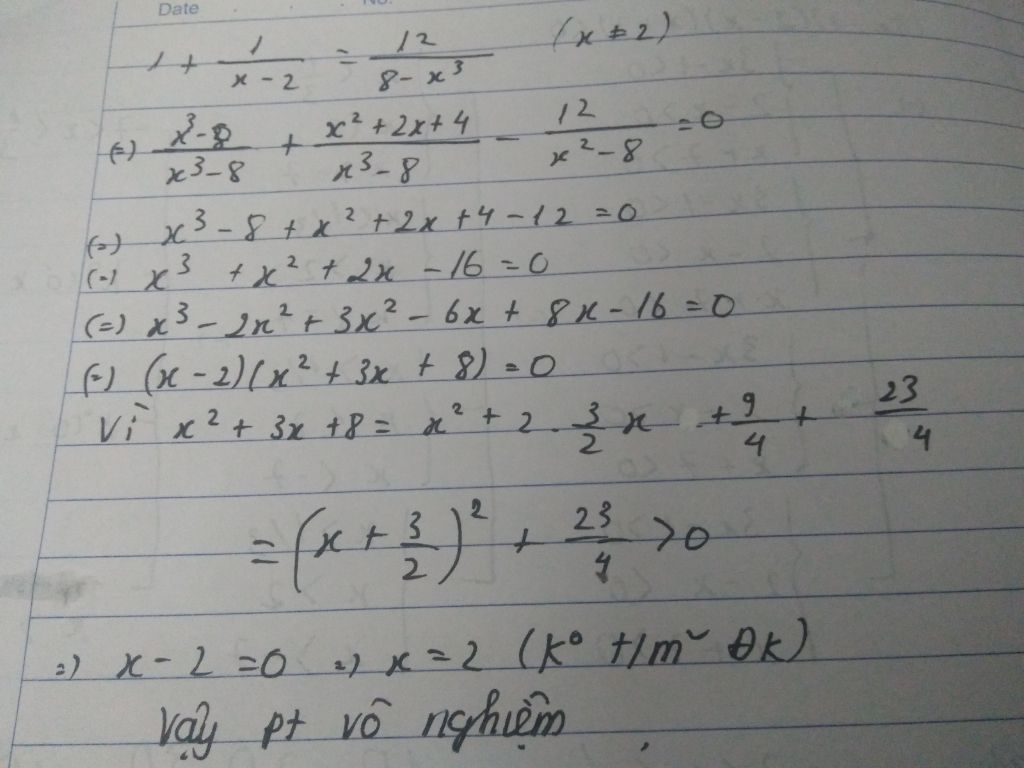 Date No.
1 + 1/(x - 2) = 12/(8 - x³) (x ≠ 2)
(=) (x³ - 8)/(x³ - 8) + (x² + 2x + 4)/(x³ - 8) - 12/(x² - 8) = 0
(=) x³ - 8 + x² + 2x + 4 - 12 = 0
(=) x³ + x² + 2x - 16 = 0
(=) x³ - 2x² + 3x² - 6x + 8x - 16 = 0
(=) (x - 2)(x² + 3x + 8) = 0
Vì x² + 3x + 8 = x² + 2 . 3/2 x + 9/4 + 23/4
= (x + 3/2)² + 23/4 > 0
=) x - 2 = 0 =) x = 2 (k° t/m~ ĐK)
Vậy pt vô nghiệm